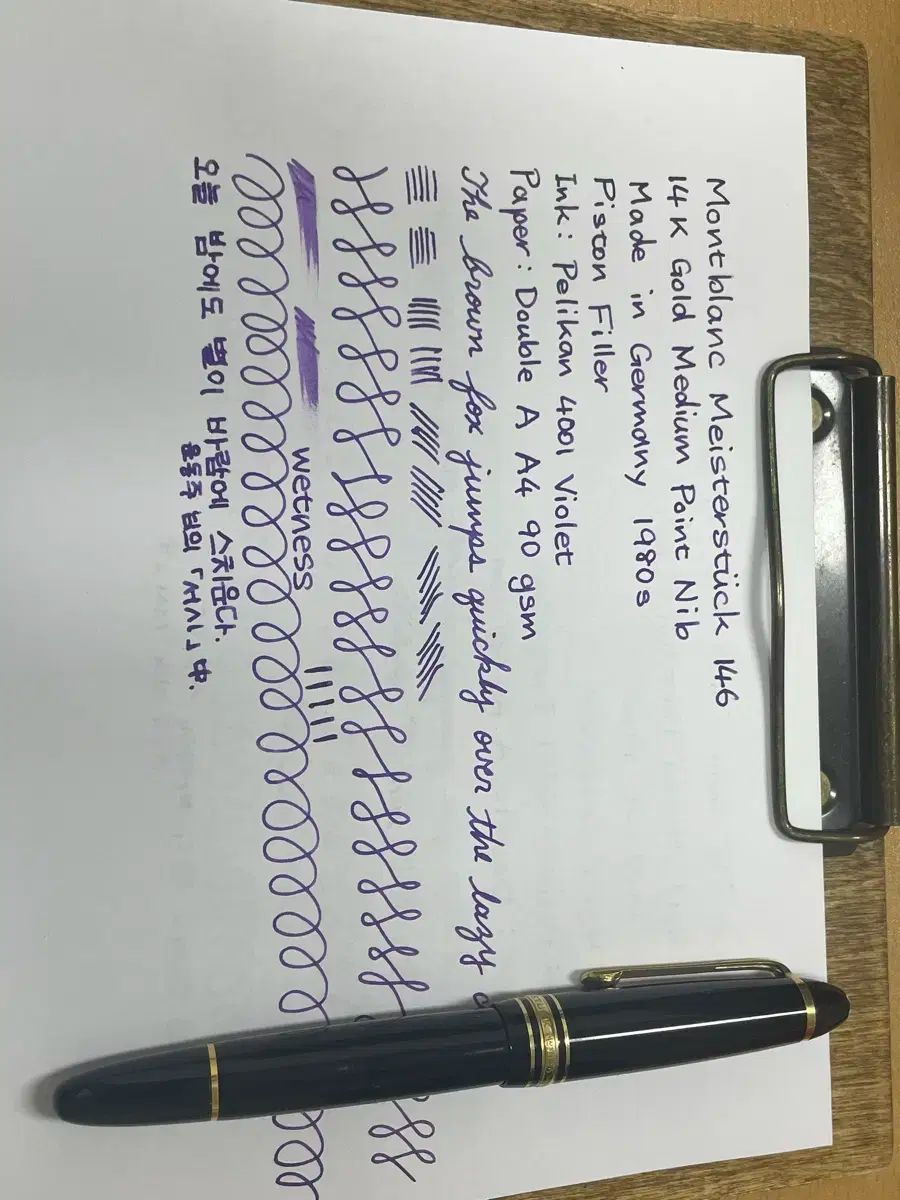 Montblanc Meisterstück 146
14K Gold Medium Point Nib
Made in Germany 1980s
Piston Filler
Ink: Pelikan 4001 Violet
Paper: Double A A4 90 gsm
The brown fox jumps quickly over the lazy
wetness
오늘 밤에도 별이 바람에 스치운다.
윤동주 님의 「서시」 中.